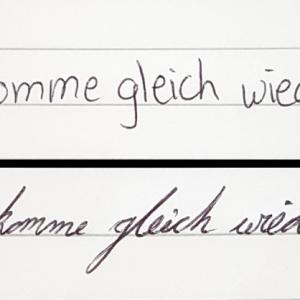 omme gleich wied
komme gleich wied